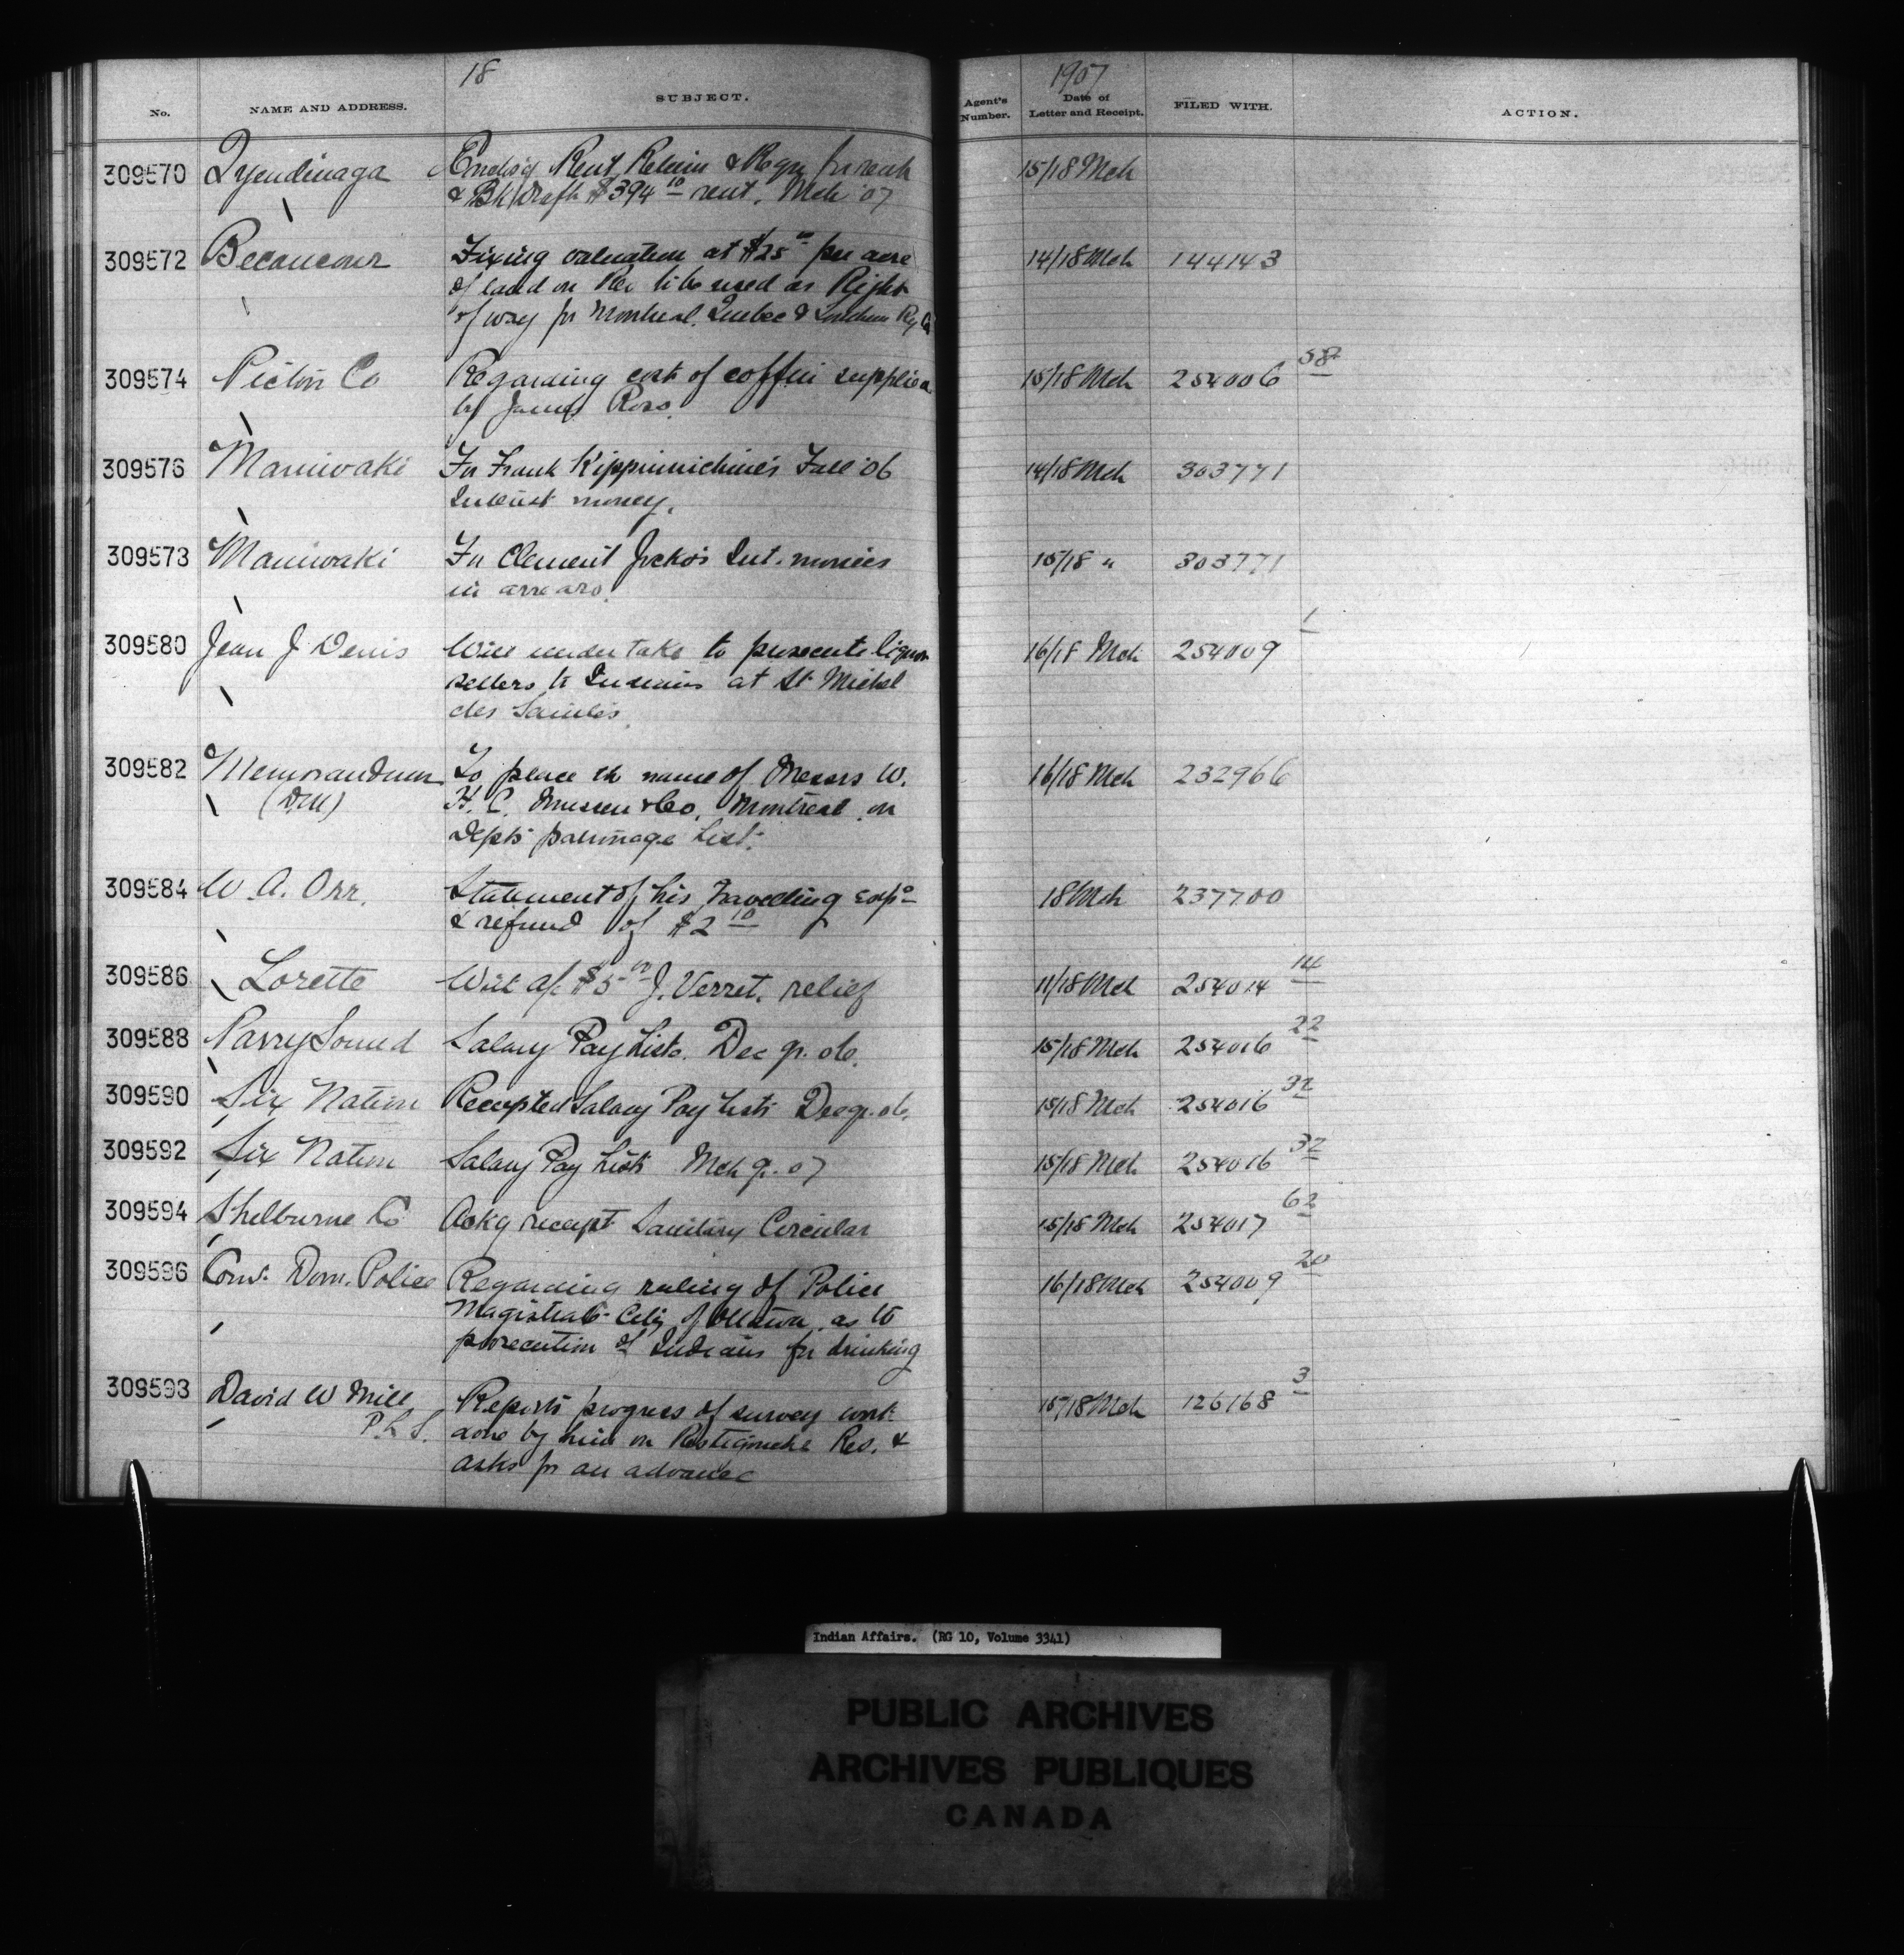 18
1907
No. NAME AND ADDRESS. SUBJECT. Agent's Number. Date of Letter and Receipt. FILED WITH. ACTION.
309570 Tyendinaga Encls'g Rent Return & Reqn for each 15/18 Mch
& Bk Draft $394 10 rent. Mch '07
309572 Becancour Fixing valuation at $25 00 per acre 14/18 Mch 144143
of land on Res to be used as Right
of way for Montreal, Quebec & Southern Ry Co
309574 Pictou Co Regarding cost of coffin supplied 15/18 Mch 254006 58
by James Ross.
309576 Maniwaki For Frank Kippinichine's Fall '06 14/18 Mch 303771
Interest money.
309578 Maniwaki For Clement Jocko's Int. monies 15/18 " 303771
in arrears.
309580 Jean J Denis Will undertake to prosecute liquor 16/18 Mch 254009 1
sellers to Indians at St Michel
des Saintes.
309582 Memorandum To place the name of Messrs W. 16/18 Mch 232966
(DCM) H. C. Mussen & Co, Montreal, on
Depts patronage list.
309584 W. A. Orr. Statement of his travelling exps 18 Mch 237700
& refund of $2 10
309586 Lorette With a/c $5 00 J. Verret. relief 11/18 Mch 254014 14
309588 Parry Sound Salary Pay Lists. Dec qr. 06. 15/18 Mch 254016 22
309590 Six Nation Receipted Salary Pay Lists Dec qr. 06. 15/18 Mch 254016 32
309592 Six Nation Salary Pay Lists Mch qr. 07 15/18 Mch 254016 32
309594 Shelburne Co Ackg receipt Sanitary Circular 15/18 Mch 254017 62
309596 Comr. Dom. Police Regarding ruling of Police 16/18 Mch 254009 20
Magistrate City of Ottawa, as to
prosecution of Indians for drinking
309598 David W Mill Reports progress of survey work 15/18 Mch 126168 3
P. L S. done by him on Restigouche Res. &
asks for an advance
Indian Affairs. (RG 10, Volume 3341)
PUBLIC ARCHIVES
ARCHIVES PUBLIQUES
CANADA